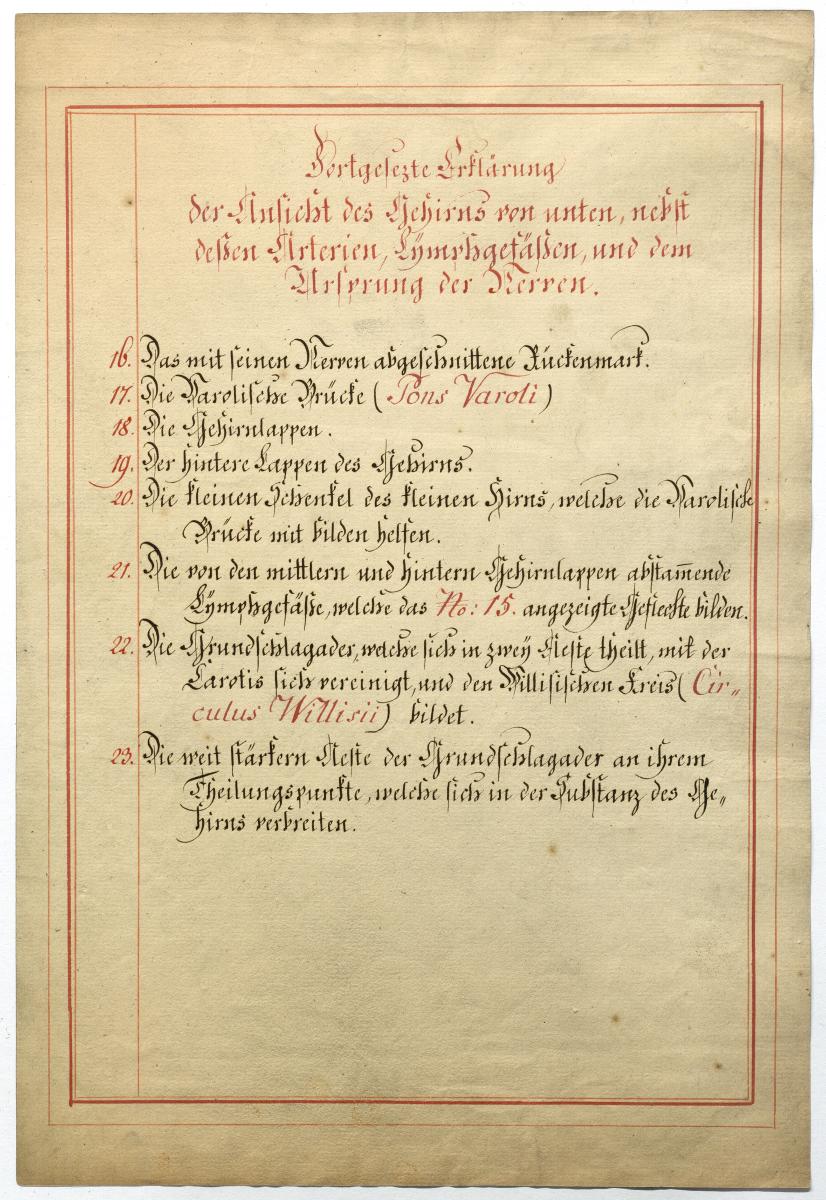 Fortgesezte Erklärung
der Ansicht des Gehirns von unten, nebst
deßen Arterien, Lÿmphgefäßen, und dem
Ursprung der Nerven.
16. Das mit seinen Nerven abgeschnittene Rückenmark.
17. Die Varolische Brücke (Pons Varoli)
18. Die Gehirnlappen.
19. Der hintere Lappen des Gehirns.
20. Die kleinen Schenkel des kleinen Hirns, welche die Varolische
Brücke mit bilden helfen.
21. Die von den mittlern und hintern Gehirnlappen abstam̅ende
Lÿmphgefäße, welche das No: 15. angezeigte Geflechte bilden.
22. Die Grundschlagader, welche sich in zweÿ Aeste theilt, mit der
Carotis sich vereinigt, und den Willisischen Kreis (Cir„
culus Willisii) bildet.
23. Die weit stärkern Aeste der Grundschlagader an ihrem
Theilungspunkte, welche sich in der Substanz des Ge„
hirns verbreiten.